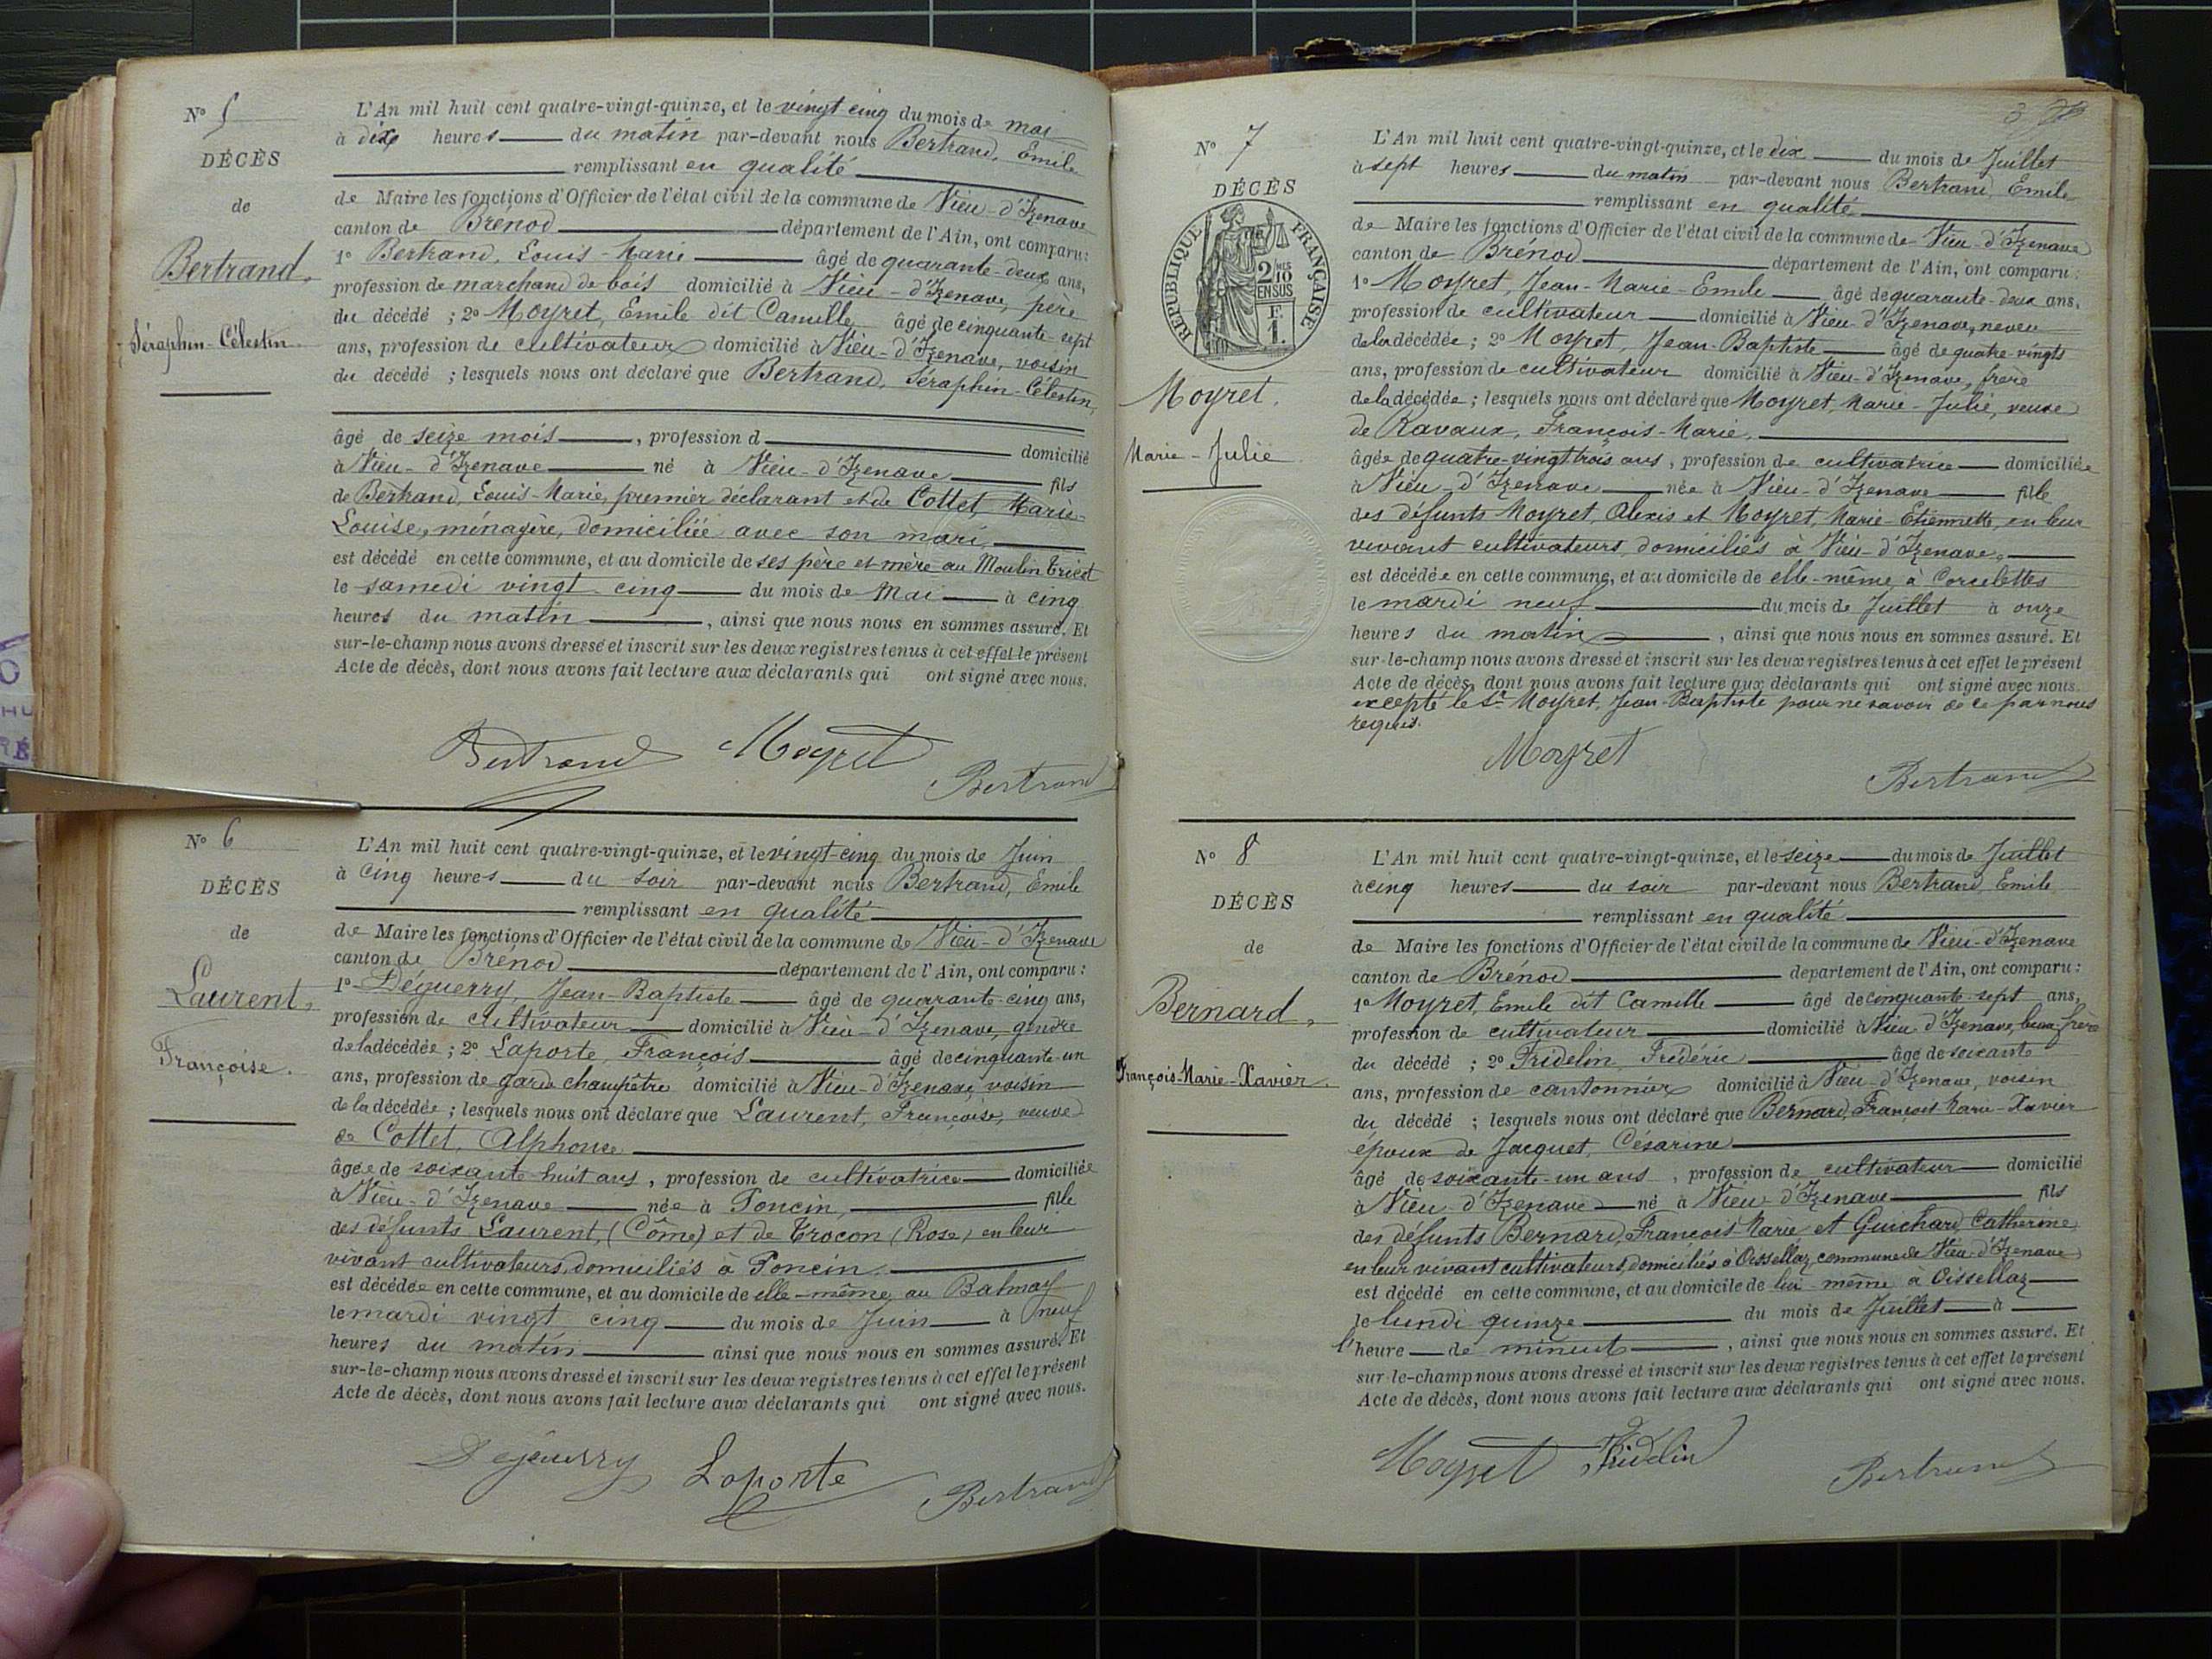 N° 5
DÉCÈS
de
Bertrand,
Séraphin-Célestin
L'An mil huit cent quatre-vingt-quinze, et le vingt-cinq du mois de mai
à dix heures du matin par-devant nous Bertrand, Emile
remplissant en qualité
de Maire les fonctions d'Officier de l'état civil de la commune de Vieu-d'Izenave
canton de Brenod département de l'Ain, ont comparu:
1° Bertrand, Louis-Marie âgé de quarante-deux ans,
profession de marchand de bois domicilié à Vieu-d'Izenave, père
du décédé ; 2° Moyret, Emile dit Camille âgé de cinquante-sept
ans, profession de cultivateur domicilié à Vieu-d'Izenave, voisin
du décédé ; lesquels nous ont déclaré que Bertrand, Séraphin-Célestin,
âgé de seize mois , profession d domicilié
à Vieu-d'Izenave né à Vieu-d'Izenave fils
de Bertrand, Louis-Marie, premier déclarant et de Cottet, Marie-
Louise, ménagère, domiciliée avec son mari,
est décédé en cette commune, et au domicile de ses père et mère au Moulin Criest
le samedi vingt-cinq du mois de Mai à cinq
heures du matin , ainsi que nous nous en sommes assuré. Et
sur-le-champ nous avons dressé et inscrit sur les deux registres tenus à cet effet le présent
Acte de décès, dont nous avons fait lecture aux déclarants qui ont signé avec nous.
Bertrand Moyret
Bertrand
N° 6
DÉCÈS
de
Laurent,
Françoise.
L'An mil huit cent quatre-vingt-quinze, et le vingt-cinq du mois de Juin
à cinq heures du soir par-devant nous Bertrand, Emile
remplissant en qualité
de Maire les fonctions d'Officier de l'état civil de la commune de Vieu-d'Izenave
canton de Brénod département de l'Ain, ont comparu :
1° Déguerry, Jean-Baptiste âgé de quarante-cinq ans,
profession de cultivateur domicilié à Vieu-d'Izenave, gendre
de la décédée ; 2° Laporte, François âgé de cinquante-un
ans, profession de garde champêtre domicilié à Vieu-d'Izenave, voisin
de la décédée ; lesquels nous ont déclaré que Laurent, Françoise, veuve
de Cottet, Alphonse
âgée de soixante-huit ans , profession de cultivatrice domiciliée
à Vieu-d'Izenave née à Poncin, fille
des défunts Laurent, (Côme) et de Crocon (Rose) en leur
vivant cultivateurs, domiciliés à Poncin.
est décédée en cette commune, et au domicile de elle-même au Balmay
le mardi vingt cinq du mois de Juin à neuf
heures du matin ainsi que nous nous en sommes assuré. Et
sur-le-champ nous avons dressé et inscrit sur les deux registres tenus à cet effet le présent
Acte de décès, dont nous avons fait lecture aux déclarants qui ont signé avec nous.
Laporte
Bertrand
N° 7
DÉCÈS
de
RÉPUBLIQUE FRANÇAISE
2/10
EN SUS
F.
1.
Moyret.
Marie-Julie
L'An mil huit cent quatre-vingt-quinze, et le dix du mois de Juillet
à sept heures du matin par-devant nous Bertrand, Emile
remplissant en qualité
de Maire les fonctions d'Officier de l'état civil de la commune de Vieu-d'Izenave
canton de Brénod département de l'Ain, ont comparu :
1° Moyret, Jean-Marie-Emile âgé de quarante-deux ans,
profession de cultivateur domicilié à Vieu-d'Izenave, neveu
de la décédée ; 2° Moyret, Jean-Baptiste âgé de quatre-vingts
ans, profession de cultivateur domicilié à Vieu-d'Izenave, frère
de la décédée ; lesquels nous ont déclaré que Moyret, Marie-Julie, veuve
de Ravaux, François-Marie,
âgée de quatre-vingt trois ans , profession de cultivatrice domiciliée
à Vieu-d'Izenave née à Vieu-d'Izenave fille
des défunts Moyret, Alexis et Moyret, Marie-Etiennette, en leur
vivant cultivateurs, domiciliés à Vieu-d'Izenave.
est décédée en cette commune, et au domicile de elle-même à Corcelettes
le mardi neuf du mois de Juillet à onze
heures du matin , ainsi que nous nous en sommes assuré. Et
sur-le-champ nous avons dressé et inscrit sur les deux registres tenus à cet effet le présent
Acte de décès, dont nous avons fait lecture aux déclarants qui ont signé avec nous.
excepté le Sr Moyret, Jean-Baptiste pour ne savoir de ce par nous
requis.
Moyret
Bertrand
N° 8
DÉCÈS
de
Bernard,
François-Marie-Xavier.
L'An mil huit cent quatre-vingt-quinze, et le seize du mois de Juillet
à cinq heures du soir par-devant nous Bertrand, Emile
remplissant en qualité
de Maire les fonctions d'Officier de l'état civil de la commune de Vieu-d'Izenave
canton de Brénod département de l'Ain, ont comparu :
1° Moyret, Emile dit Camille âgé de cinquante-sept ans,
profession de cultivateur domicilié à Vieu-d'Izenave, beau-frère
du décédé ; 2° Fridelin, Frédéric âgé de soixante
ans, profession de cantonnier domicilié à Vieu-d'Izenave, voisin
du décédé ; lesquels nous ont déclaré que Bernard, François-Marie-Xavier
époux de Jacquet, Césarine
âgé de soixante-un ans , profession de cultivateur domicilié
à Vieu-d'Izenave né à Vieu-d'Izenave fils
des défunts Bernard, François Marie, et Guichard Catherine
en leur vivant cultivateurs, domiciliés à Oissellaz, commune de Vieu-d'Izenave
est décédé en cette commune, et au domicile de lui-même à Oissellaz
le lundi quinze du mois de Juillet à
l'heure de minuit , ainsi que nous nous en sommes assuré. Et
sur-le-champ nous avons dressé et inscrit sur les deux registres tenus à cet effet le présent
Acte de décès, dont nous avons fait lecture aux déclarants qui ont signé avec nous.
Moyret Fridelin
Bertrand